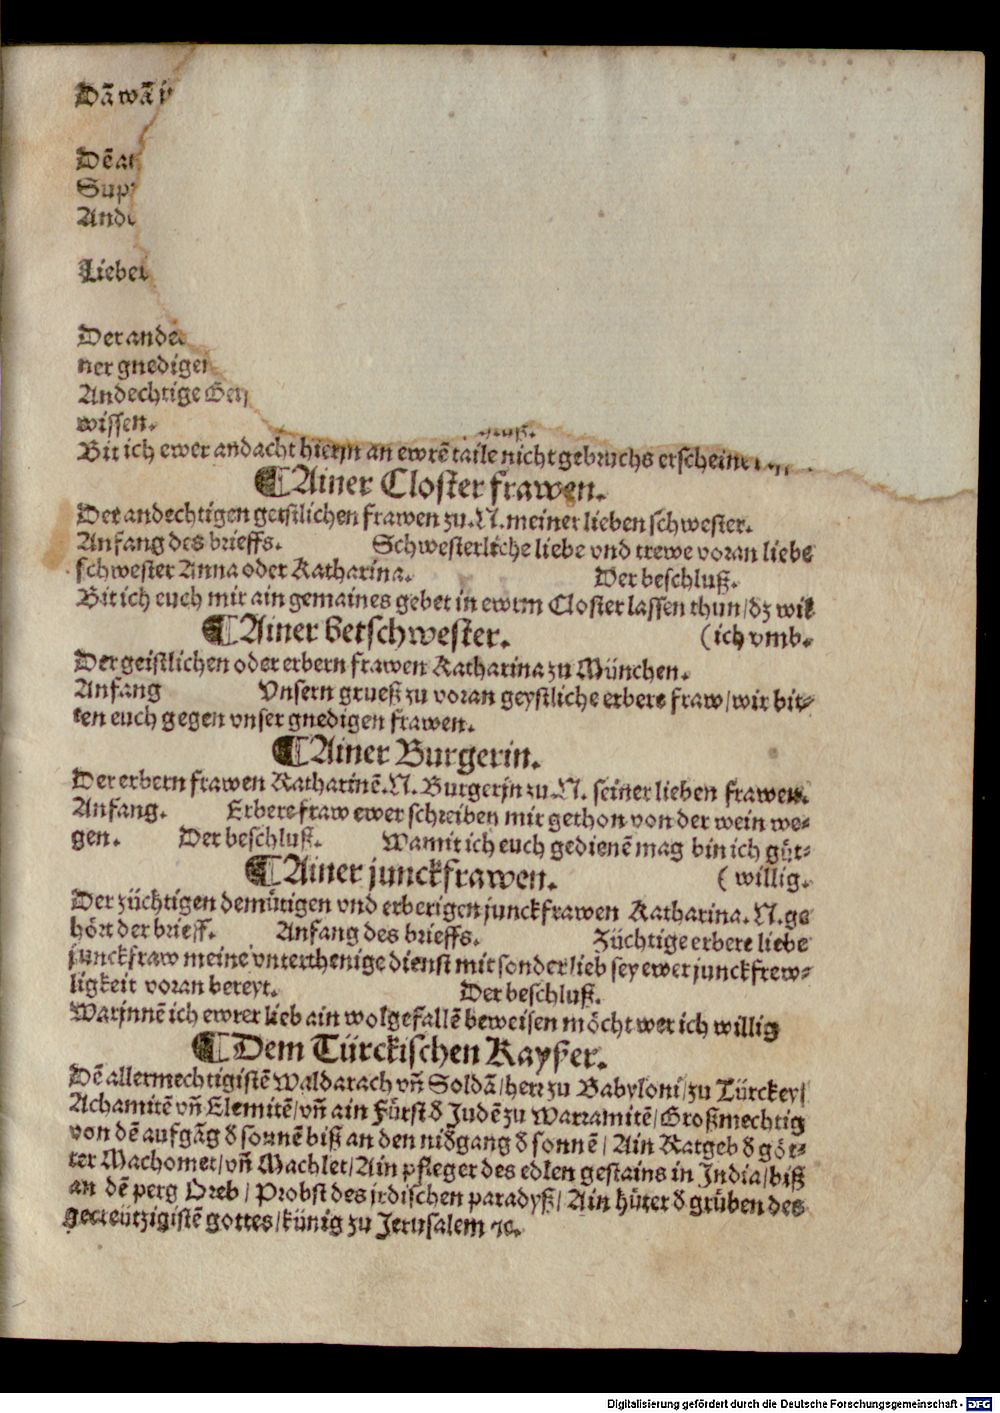 Dā wā
Dē
Sup
Lieber
Der ande
ner gnediger
Andechtige
wissen.
Bit ich ewer andacht hierjn an ewrē taile nicht gebruchs
¶ Ainer Closter frawen.
Der andechtigen geistlichen frawen zu. N. meiner lieben schwester.
Anfang des brieffs. Schwesterliche liebe vnd trewe voran liebe
schwester Anna oder Katharina. Der beschluß.
Bit ich euch mir ain gemaines gebet in ewrm Closter lassen thun/dz wil
¶ Ainer betschwester. (ich vmb.
Der geistlichen oder erbern frawen Katharina zu München.
Anfang Vnsern grueß zu voran geystliche erbere fraw/wir bit⸗
ten euch gegen vnser gnedigen frawen.
¶ Ainer Burgerin.
Der erbern frawen Katharinē. N. Burgerjn zu. N. seiner lieben frawen.
Anfang. Erbere fraw ewer schreiben mir gethon von der wein we⸗
gen. Der beschluß. Wamit ich euch gedienē mag bin ich güt⸗
¶ Ainer junckfrawen. ( willig.
Der züchtigen demütigen vnd erberigen junckfrawen Katharina. N. ge
hört der brieff. Anfang des brieffs. Züchtige erbere liebe
junckfraw meine vnterthenige dienst mit sonder lieb sey ewer junckfrew⸗
ligkeit voran bereyt. Der beschluß.
Warjnnē ich ewrer lieb ain wolgefallē beweisen möcht wer ich willig
¶ Dem Türckischen Kayser.
Dē allermechtigistē Waldarach vn̄ Soldā/herr zu Babyloni/zu Türckey/
Achamitē vn̄ Elemitē/vn̄ ain Fürst ð Judē zu Warramitē/Großmechtig
von dē aufgāg ð sonnē biß an den niðgang ð sonnē/ Ain Ratgeb ð göt⸗
ter Machomet/vn̄ Machlet/Ain pfleger des edlen gestains in India/biß
an dē perg Oreb/ Probst des jrdischen paradyß/ Ain hüter ð grüben des
gecreützigistē gottes/künig zu Jerusalem ꝛc.
Digitalisierung gefördert durch die Deutsche Forschungsgemeinschaft - DFG